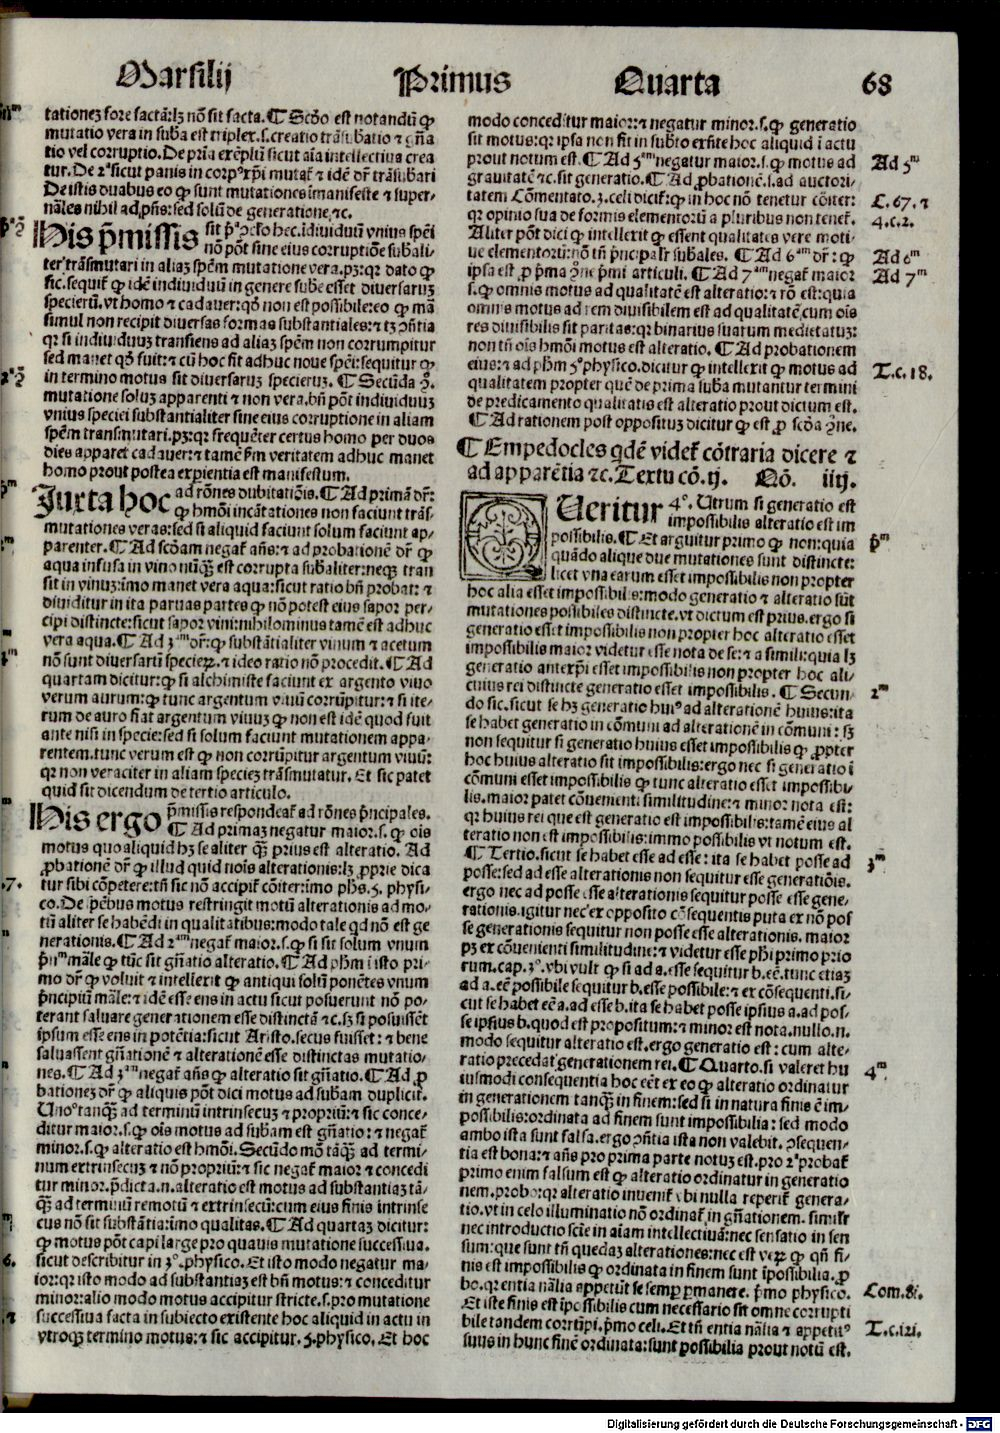 Marsilij Primus Quarta 68
tationez fore factā: lz nō sit facta. ¶ Scdo est notandū ꝙ
mutatio vera in suba est triplex .s. creatio trāsubatio ⁊ gn̄a
tio vel corruptio. De pria exēplū sicut aīa intellectiua crea
tur. De 2ᵃ sicut panis in corpꝰ xp̄i mutat ⁊ idē dr̄ trāsubari
De istis duabus eo ꝙ sunt mutationes īmanifeste ⁊ super-
nāles nihil ad p̄ns: sed solū de generatione ⁊c.
His p̄missis sit pᵃ ꝯclo hec. īdiuiduū vnius spēi
nō pōt sine eius corruptiōe subali-
ter trāsmutari in aliaz spēm mutatione vera. pz: qr dato ꝙ
sic. sequit ꝙ idē indiuiduū in genere sube esset diuersaruz
specierū. vt homo ⁊ cadauer: qđ non est possibile: eo ꝙ mā
simul non recipit diuersas formas substantiales: ⁊ tz ꝯn̄tia
qr si indiuiduuz transiens ad aliaz spēm non corrumpitur
sed manet qđ fuit: ⁊ cū hoc fit adhuc noue spēi: sequitur ꝙ
in termino motus sit diuersaruz specieruz. ¶ Secūda ꝯ̄.
mutatione soluz apparenti ⁊ non vera. bn̄ pōt indiuiduuz
vnius speciei substantialiter sine eius corruptione in aliam
spēm transmutari. pz: qr frequēter certus homo per duos
dies apparet cadauer: ⁊ tamē fm veritatem adhuc manet
homo prout postea expientia est manifestum.
Juxta hoc ad rōnes dubitatiōis. ¶ Ad primā dr̄:
ꝙ hmōi incātationes non faciunt trās-
mutationes veras: sed si aliquid faciunt solum faciunt ap-
parenter. ¶ Ad scdam negat an̄s: ⁊ ad probationē dr̄ ꝙ
aqua infusa in vino nūꝙ̄ est corrupta subaliter: neqz tran
sit in vinuz: imo manet vera aqua: sicut ratio bn̄ probat: ⁊
diuiditur in ita paruas partes ꝙ nō potest eius sapor per-
cipi distincte: sicut sapor vini: nihilominus tamē est adhuc
vera aqua. ¶ Ad 3ᵃᵐ dr̄: ꝙ substātialiter vinum ⁊ acetum
nō sunt diuersarū specieꝝ. ⁊ ideo ratio nō procedit. ¶ Ad
quartam dicitur: ꝙ si alchimiste faciunt ex argento viuo
verum aurum: ꝙ tunc argentum viuū corrūpitur: ⁊ si ite-
rum de auro fiat argentum viuuz ꝙ non est idē quod fuit
ante nisi in specie: sed si solum faciunt mutationem appa-
rentem. tunc verum est ꝙ non corrūpitur argentum viuū:
qr non veraciter in aliam speciez trāsmutatur. Et sic patet
quid sit dicendum de tertio articulo.
His ergo p̄missis respondeat ad rōnes p̄ncipales.
¶ Ad primaz negatur maior .s. ꝙ oīs
motus quo aliquid hz se aliter ꝙ̄ prius est alteratio. Ad
ꝓbationē dr̄ ꝙ illud quid noīs alterationis: lz ꝓprie dica
tur sibi cōpetere: tn̄ sic nō accipit cōiter: imo ph̄s. 5. physi-
co. De spēbus motus restringit motū alterationis ad mo-
tū aliter se habēdi in qualitatibus: modo tale qd nō est ge
nerationis. ¶ Ad 2ᵃᵐ negat maior .s. ꝙ si sit solum vnum
p̄ncipiū māle ꝙ tūc sit gn̄atio alteratio. ¶ Ad phm ī isto pri-
mo dr̄ ꝙ voluit ⁊ intellexit ꝙ antiqui solū ponētes vnum
p̄ncipiū māle: ⁊ idē esse ens in actu sicut posuerunt nō po-
terant saluare generationem esse distinctā ⁊c. sz si posuissēt
ipsum esse ens in potētia: sicut Aristo. secus fuisset: ⁊ bene
saluassent gn̄ationē ⁊ alterationē esse distinctas mutatio-
nes. ¶ Ad 3ᵃᵐ negat an̄s ꝙ alteratio sit gn̄atio. ¶ Ad ꝓ
bationez dr̄ ꝙ aliquis pōt dici motus ad subam duplicit.
Unoꝰ tanqz ad terminū intrinsecuz ⁊ propriū: ⁊ sic conce-
ditur maior .s. ꝙ oīs motus ad subam est gn̄atio: ⁊ negat
minor .s. ꝙ alteratio est hmōi. Secūdo mō tāqz ad termi-
num extrinsecuz ⁊ nō propriū: ⁊ sic negat maior ⁊ concedi
tur minor. p̄dicta .n. alteratio est motus ad substantiaz tā-
qz ad terminū remotū ⁊ extrinsecū: cum eius finis intrinse
cus nō sit substātia: imo qualitas. ¶ Ad quartaz dicitur:
ꝙ motus pōt capi large pro quauis mutatione successiua.
sicut describitur in 3ᵒ. physico. Et isto modo negatur ma-
ior: qr isto modo ad substantiaz est bn̄ motus: ⁊ conceditur
minor: alio modo motus accipitur stricte .s. pro mutatione
successiua facta in subiecto existente hoc aliquid in actu in
vtroqz termino motus: ⁊ sic accipitur. 5. physico. Et hoc
modo conceditur maior: ⁊ negatur minor .s. ꝙ generatio
sit motus: qr ipsa non fit in subto exn̄te hoc aliquid ī actu
prout notum est. ¶ Ad 5ᵃᵐ negatur maior .s. ꝙ motus ad
grauitatē ⁊c. sit generatio. ¶ Ad ꝓbationē .s. ad auctori-
tatem Cōmentato. 3. celi dicit: ꝙ in hoc nō tenetur cōiter:
qr opinio sua de formis elementorū a pluribus non tenet.
Aliter pōt dici ꝙ intellexit ꝙ essent qualitates vere moti-
ue elementorū: nō tn̄ p̄ncipalr subales. ¶ Ad 6ᵃᵐ dr̄: ꝙ
ipsa est ꝓ pma ꝯne pmi articuli. ¶ Ad 7ᵃᵐ negat maior
.s. ꝙ omnis motus ad qualitatē est alteratio: ⁊ rō est: quia
omnis motus ad rem diuisibilem est ad qualitatē, cum oīs
res diuisibilis sit paritas: qr binarius suarum medietatuz:
non tn̄ oīs hmōi motus est alteratio. ¶ Ad probationem
eius: ⁊ ad phm 5ᵒ physico. dicitur ꝙ intellexit ꝙ motus ad
qualitatem propter quē de prima suba mutantur termini
de predicamento qualitatis est alteratio prout dictum est.
¶ Ad rationem post oppositum dicitur ꝙ est ꝓ scda ꝯne.
¶ Empedocles qdē videt cōtraria dicere ⁊
ad apparētia ⁊c. Textu cō. ij. Nō. iiij.
Queritur 4ᵒ. Utrum si generatio est
impossibilis alteratio est im
possibilis. ¶ Et arguitur primo ꝙ non: quia
quādo alique due mutationes sunt distincte:
licet vna earum esset impossibilis non propter
hoc alia esset impossibilis: modo generatio ⁊ alteratio sūt
mutationes possibiles distincte. vt dictum est prius. ergo si
generatio esset impossibilis non propter hoc alteratio esset
impossibilis maior videtur esse nota de se: ⁊ a simili: quia lz
generatio antexp̄i esset impossibilis non propter hoc ali-
cuius rei distincte generatio esset impossibilis. ¶ Secun-
do sic. sicut se hz generatio huiꝰ ad alterationē huius: ita
se habet generatio in cōmuni ad alterationē in cōmuni: sz
non sequitur si generatio huius esset impossibilis ꝙ ꝓpter
hoc huius alteratio sit impossibilis: ergo nec si generatio ī
cōmuni esset impossibilis ꝙ tunc alteratio esset impossibi-
lis. maior patet cōuenienti similitudine: ⁊ minor nota est:
qr huius rei que est generatio est impossibilis: tamē eius al
teratio non est impossibilis: immo possibilis vt notum est.
¶ Tertio. sicut se habet esse ad esse: ita se habet posse ad
posse: sed ad esse alterationis non sequitur esse generatiōis.
ergo nec ad posse esse alterationis sequitur posse esse gene-
rationis. igitur nec ex opposito cōsequentis puta ex nō pos
se generationis sequitur non posse esse alterationis. maior
pz ex cōuenienti similitudine: ⁊ videtur esse phi primo prio
rum. cap. 3ᵒ. vbi vult ꝙ si ad a. esse sequitur b. eē. tunc etiaz
ad a. eē possibile sequitur b. esse possibile: ⁊ ex cōsequenti. si-
cut se habet eē a. ad esse b. ita se habet posse ipsius a. ad pos-
se ipsius b. quod est propositum: ⁊ minor est nota. nullo .n.
modo sequitur alteratio est. ergo generatio est: cum alte-
ratio precedat generationem rei. ¶ Quarto. si valeret hu
iusmodi consequentia hoc eēt ex eo ꝙ alteratio ordinatur
in generationem tanqz in finem: sed si in natura finis ē im-
possibilis: ordinata ad finem sunt impossibilia: sed modo
ambo ista sunt falsa. ergo ꝯn̄tia ista non valebit. ꝯsequen-
tia est bona: ⁊ an̄s pro prima parte notuz est. pro 2ᵃ probat
primo enim falsum est ꝙ alteratio ordinatur in generatio
nem. probo: qr alteratio inuenit vbi nulla reperit genera-
tio. vt in celo illuminatio nō ordinat in gn̄ationem. similr
nec introductio scīe in aīam intellectiuā: nec sensatio in sen
sum: que sunt tn̄ quedaz alterationes: nec est veꝝ ꝙ qn̄ fi-
nis est impossibilis ꝙ ordinata in finem sunt īpossibilia. ꝓ
bo. qr entia nālia appetūt se semp ꝑmanere. pmo physico.
Et iste finis est īpossibilis cum necessario sit omne corrupti
bile tandem corrūpi. pmo celi. Et tn̄ entia nālia ⁊ appetitꝰ
suus in hunc finē ordinata: sunt possibilia prout notū est.
Ad 5ᵐ
C. 67. ⁊
4. c. 2.
Ad 6ᵐ
Ad 7ᵐ
T. c. 18.
pᵐ
2ᵐ
3ᵐ
4ᵐ
Com. 8i.
T. c. iri.
Digitalisierung gefördert durch die Deutsche Forschungsgemeinschaft - DFG